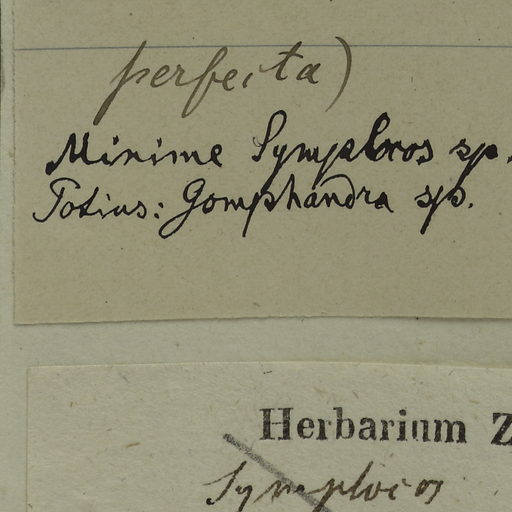 perfecta)
Minime Symplocos sp.
Potius: Gomphandra sp.
Herbarium Z
Symplocos